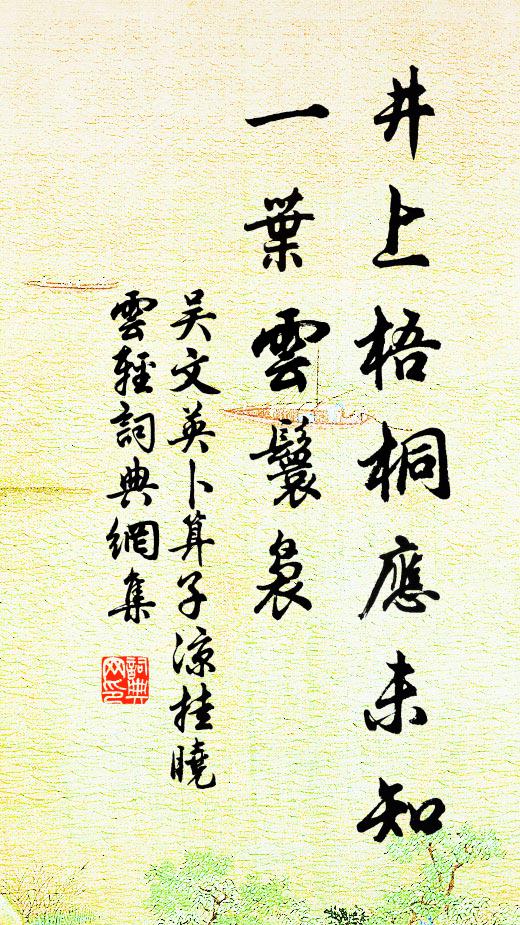 井上梧桐應未知
一葉雲鬟裊
吴文英卜算子凉挂曉
雲輕詞典網集
詞典网印